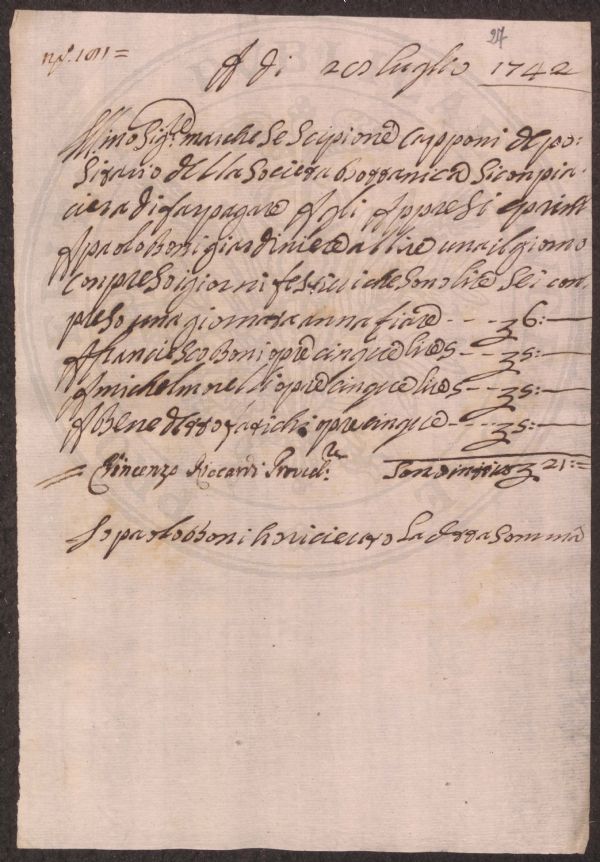 27
nº. 101=
A di 20 luglio 1742
Illmo Sigre. marchese Scipione Capponi depo-
sitario della Societa Bottanica Si conpia-
ciera di far pagare Agli Appresi e prima
A paolo Boni giardiniere a lire una il giorno
Conpreso i giorni festivi che sono lire Sei con
preso una giornata annafiare --- 6:—
A francescoBoni opre cinque lire 5 -- 5:—
A michel morelli opre cinque lire 5 -- 5:—
A Benedetto fatichi opre cinque --- 5:—
Vincenzo Riccardi Proved.re Sono in tutto 21:=
Io paolo Boni ho riceuto La detta Somma